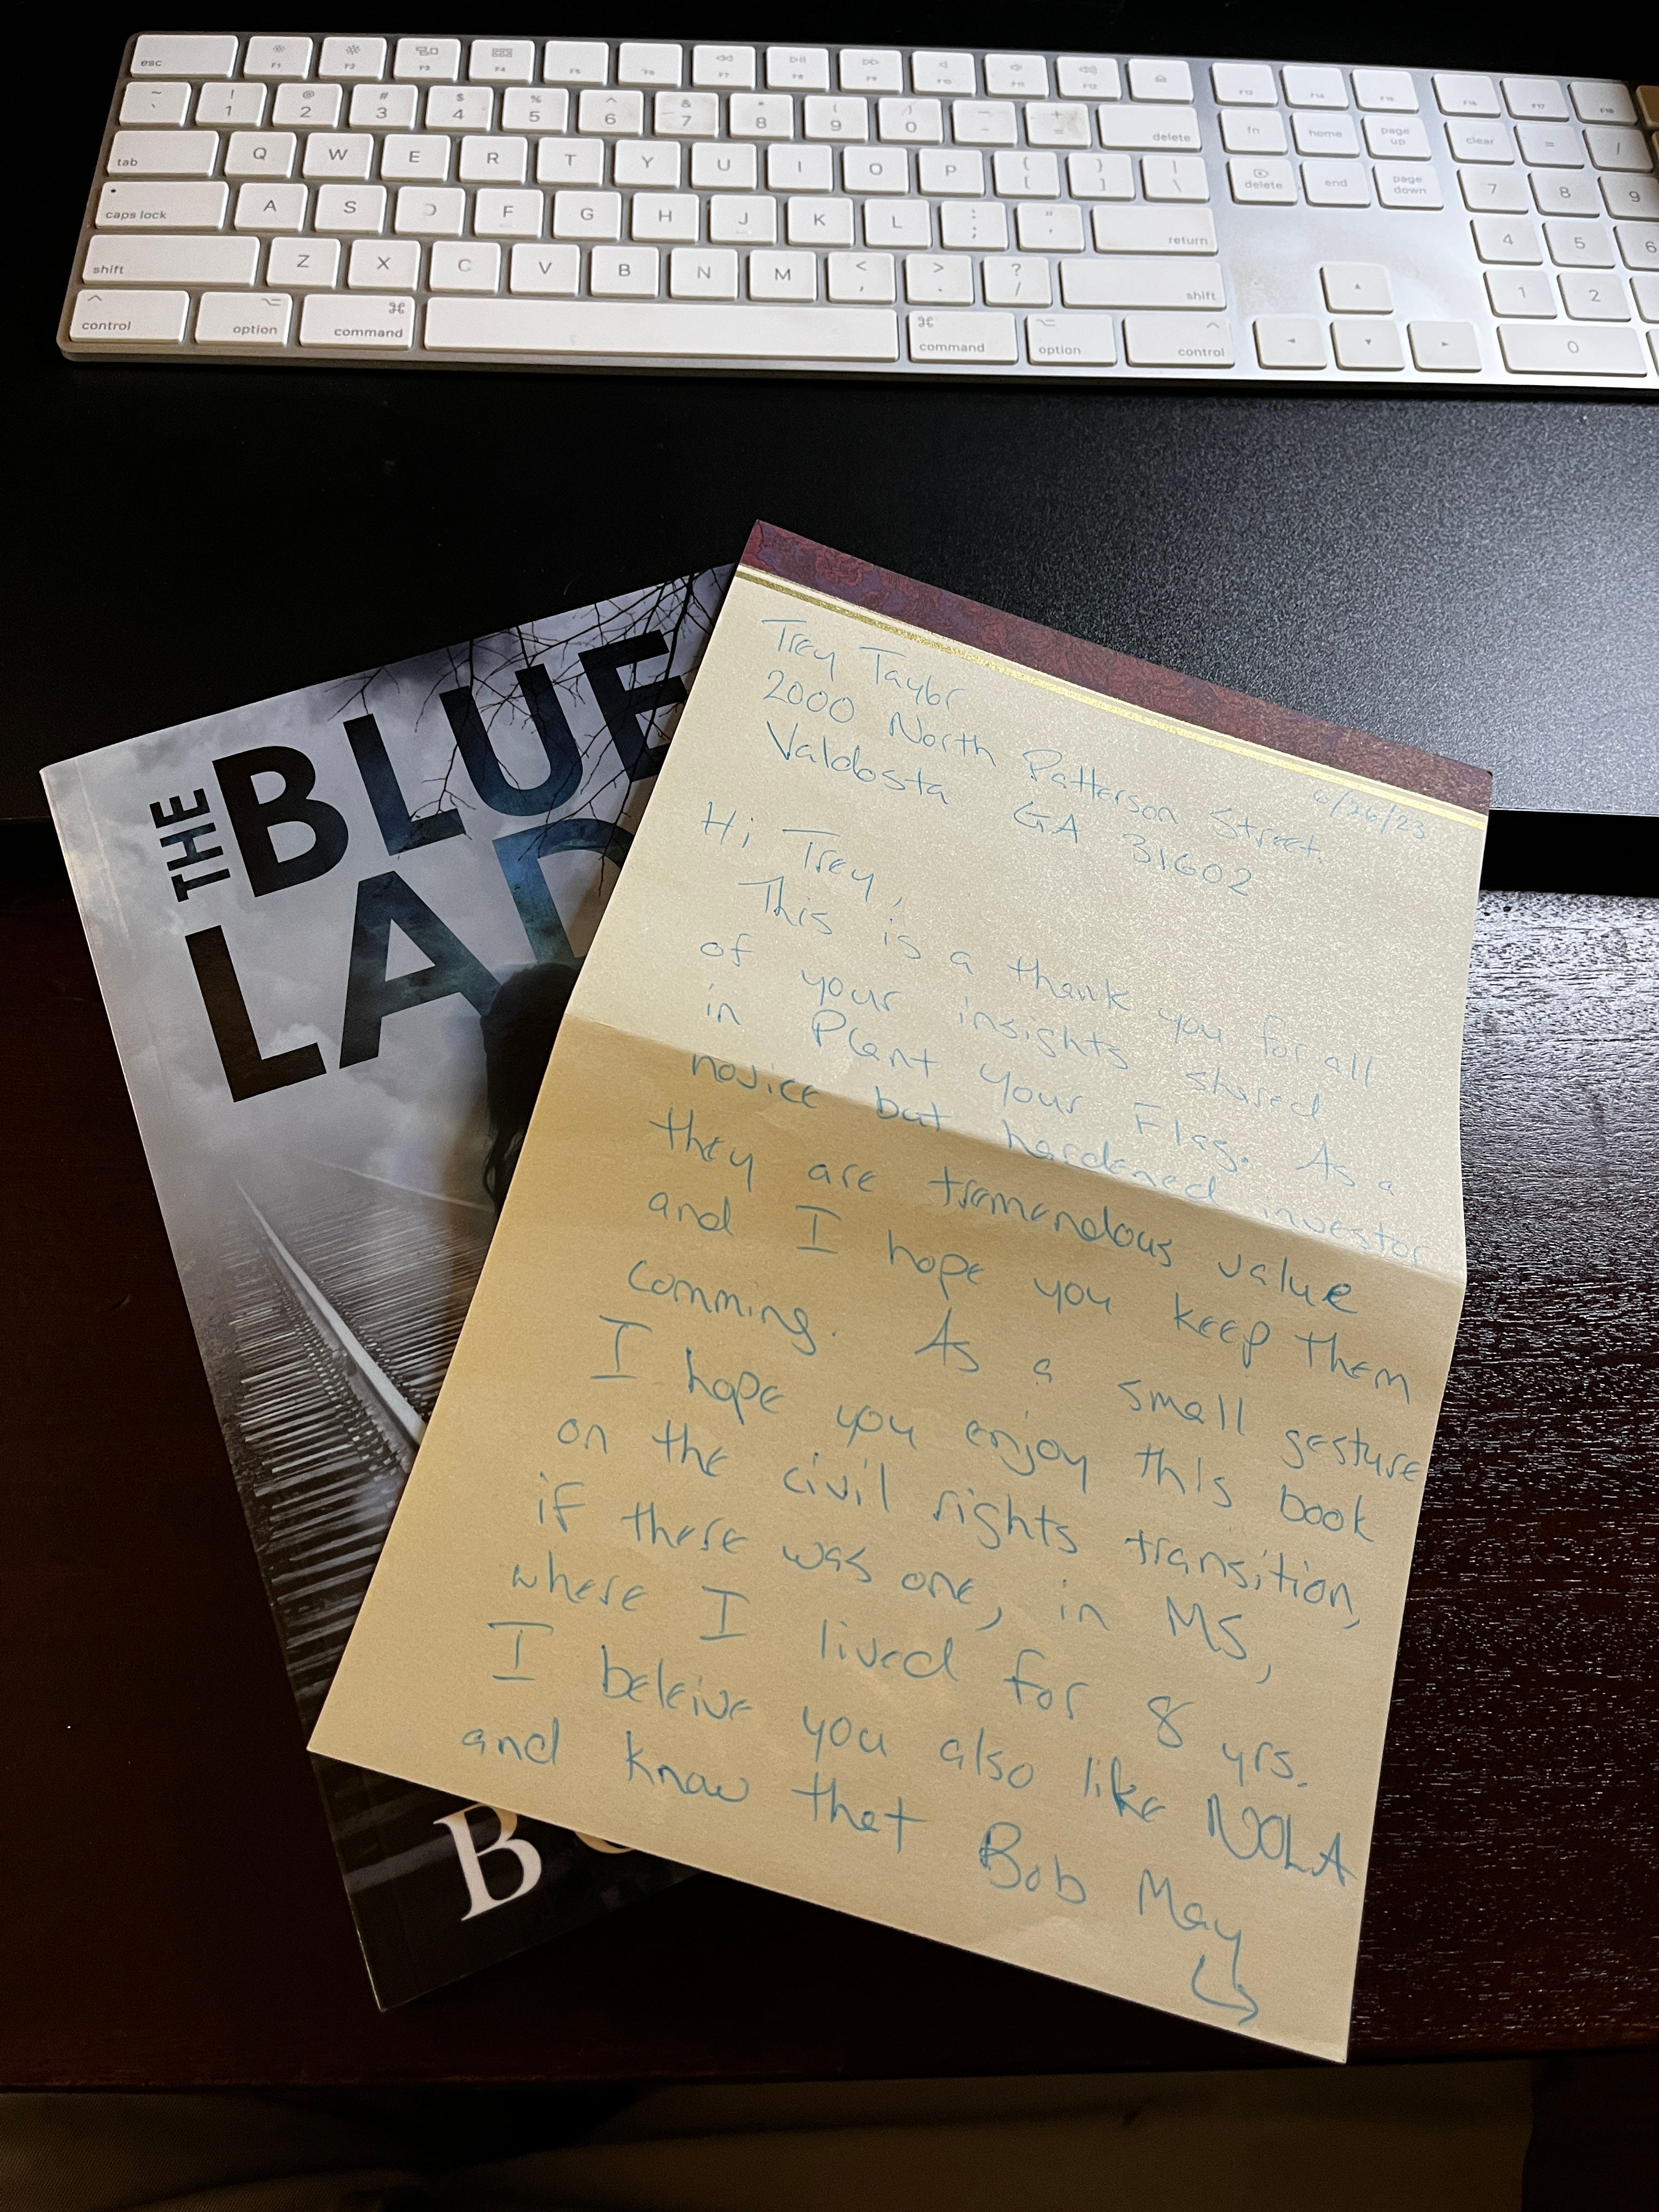 esc F1 F2 F3 F4 F5 F6 F7 F8 F9 F10 F11 F12 F13 F14 F15 F16 F17 F18
~ ` ! 1 @ 2 # 3 $ 4 % 5 ^ 6 & 7 * 8 ( 9 ) 0 _ - + = delete fn home page up clear = /
tab Q W E R T Y U I O P { [ } ] | \ delete end page down 7 8 9
caps lock A S D F G H J K L : ; " ' return 4 5 6
shift Z X C V B N M < , > . ? / shift 1 2
control option command command option control 0
THE
BLUE
LAD
B
Trey Taylor
2000 North Patterson Street.
Valdosta GA 31602
6/26/23
Hi Trey,
This is a thank you for all
of your insights shared
in Plant Your Flag. As a
novice but hardened investor
they are tremendous value
and I hope you keep them
comming. As a small gesture
I hope you enjoy this book
on the civil rights transition,
if there was one, in MS,
where I lived for 8 yrs.
I beleive you also like NOLA
and know that Bob May